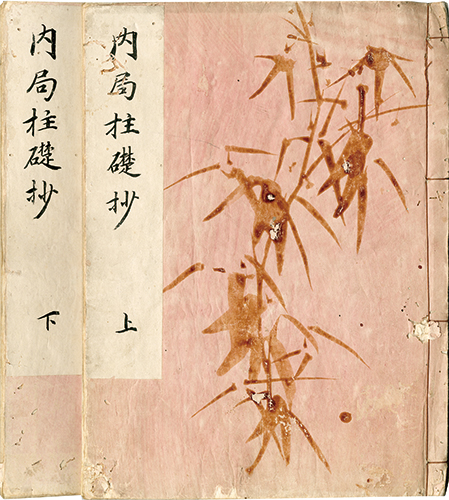 内局柱礎抄
上
内局柱礎抄
下